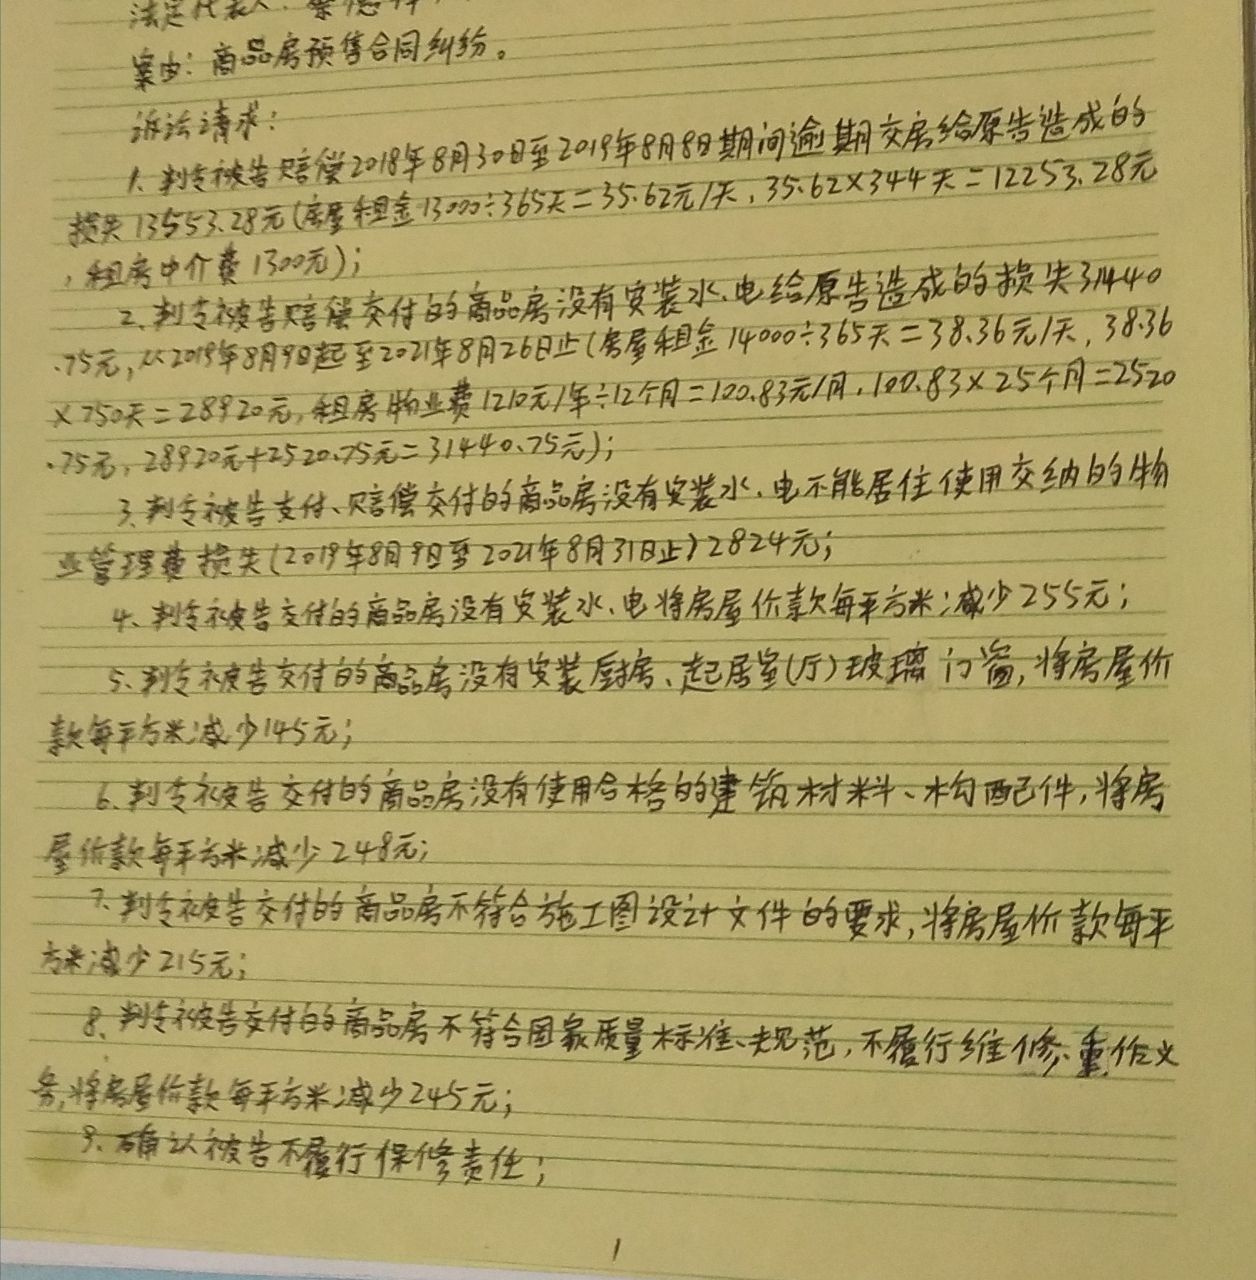 法定代表人：蔡德
案由：商品房预售合同纠纷。
诉讼请求：
1、判令被告赔偿2018年8月30日至2019年8月8日期间逾期交房给原告造成的
损失13553.28元（房屋租金13000÷365天=35.62元/天，35.62×344天=12253.28元
，租房中介费1300元）；
2、判令被告赔偿交付的商品房没有安装水、电给原告造成的损失31440
.75元，从2019年8月9日起至2021年8月26日止（房屋租金14000÷365天=38.36元/天，38.36
×750天=28920元，租房物业费1210元/年÷12个月=100.83元/月，100.83×25个月=2520
.75元，28920元+2520.75元=31440.75元）；
3、判令被告支付、赔偿交付的商品房没有安装水、电不能居住使用交纳的物
业管理费损失（2019年8月9日至2021年8月31日止）2824元；
4、判令被告交付的商品房没有安装水、电将房屋价款每平方米减少255元；
5、判令被告交付的商品房没有安装厨房、起居室（厅）玻璃门窗，将房屋价
款每平方米减少145元；
6、判令被告交付的商品房没有使用合格的建筑材料、构配件，将房
屋价款每平方米减少248元；
7、判令被告交付的商品房不符合施工图设计文件的要求，将房屋价款每平
方米减少215元；
8、判令被告交付的商品房不符合国家质量标准、规范，不履行维修、重作义
务，将房屋价款每平方米减少245元；
9、确认被告不履行保修责任；
1